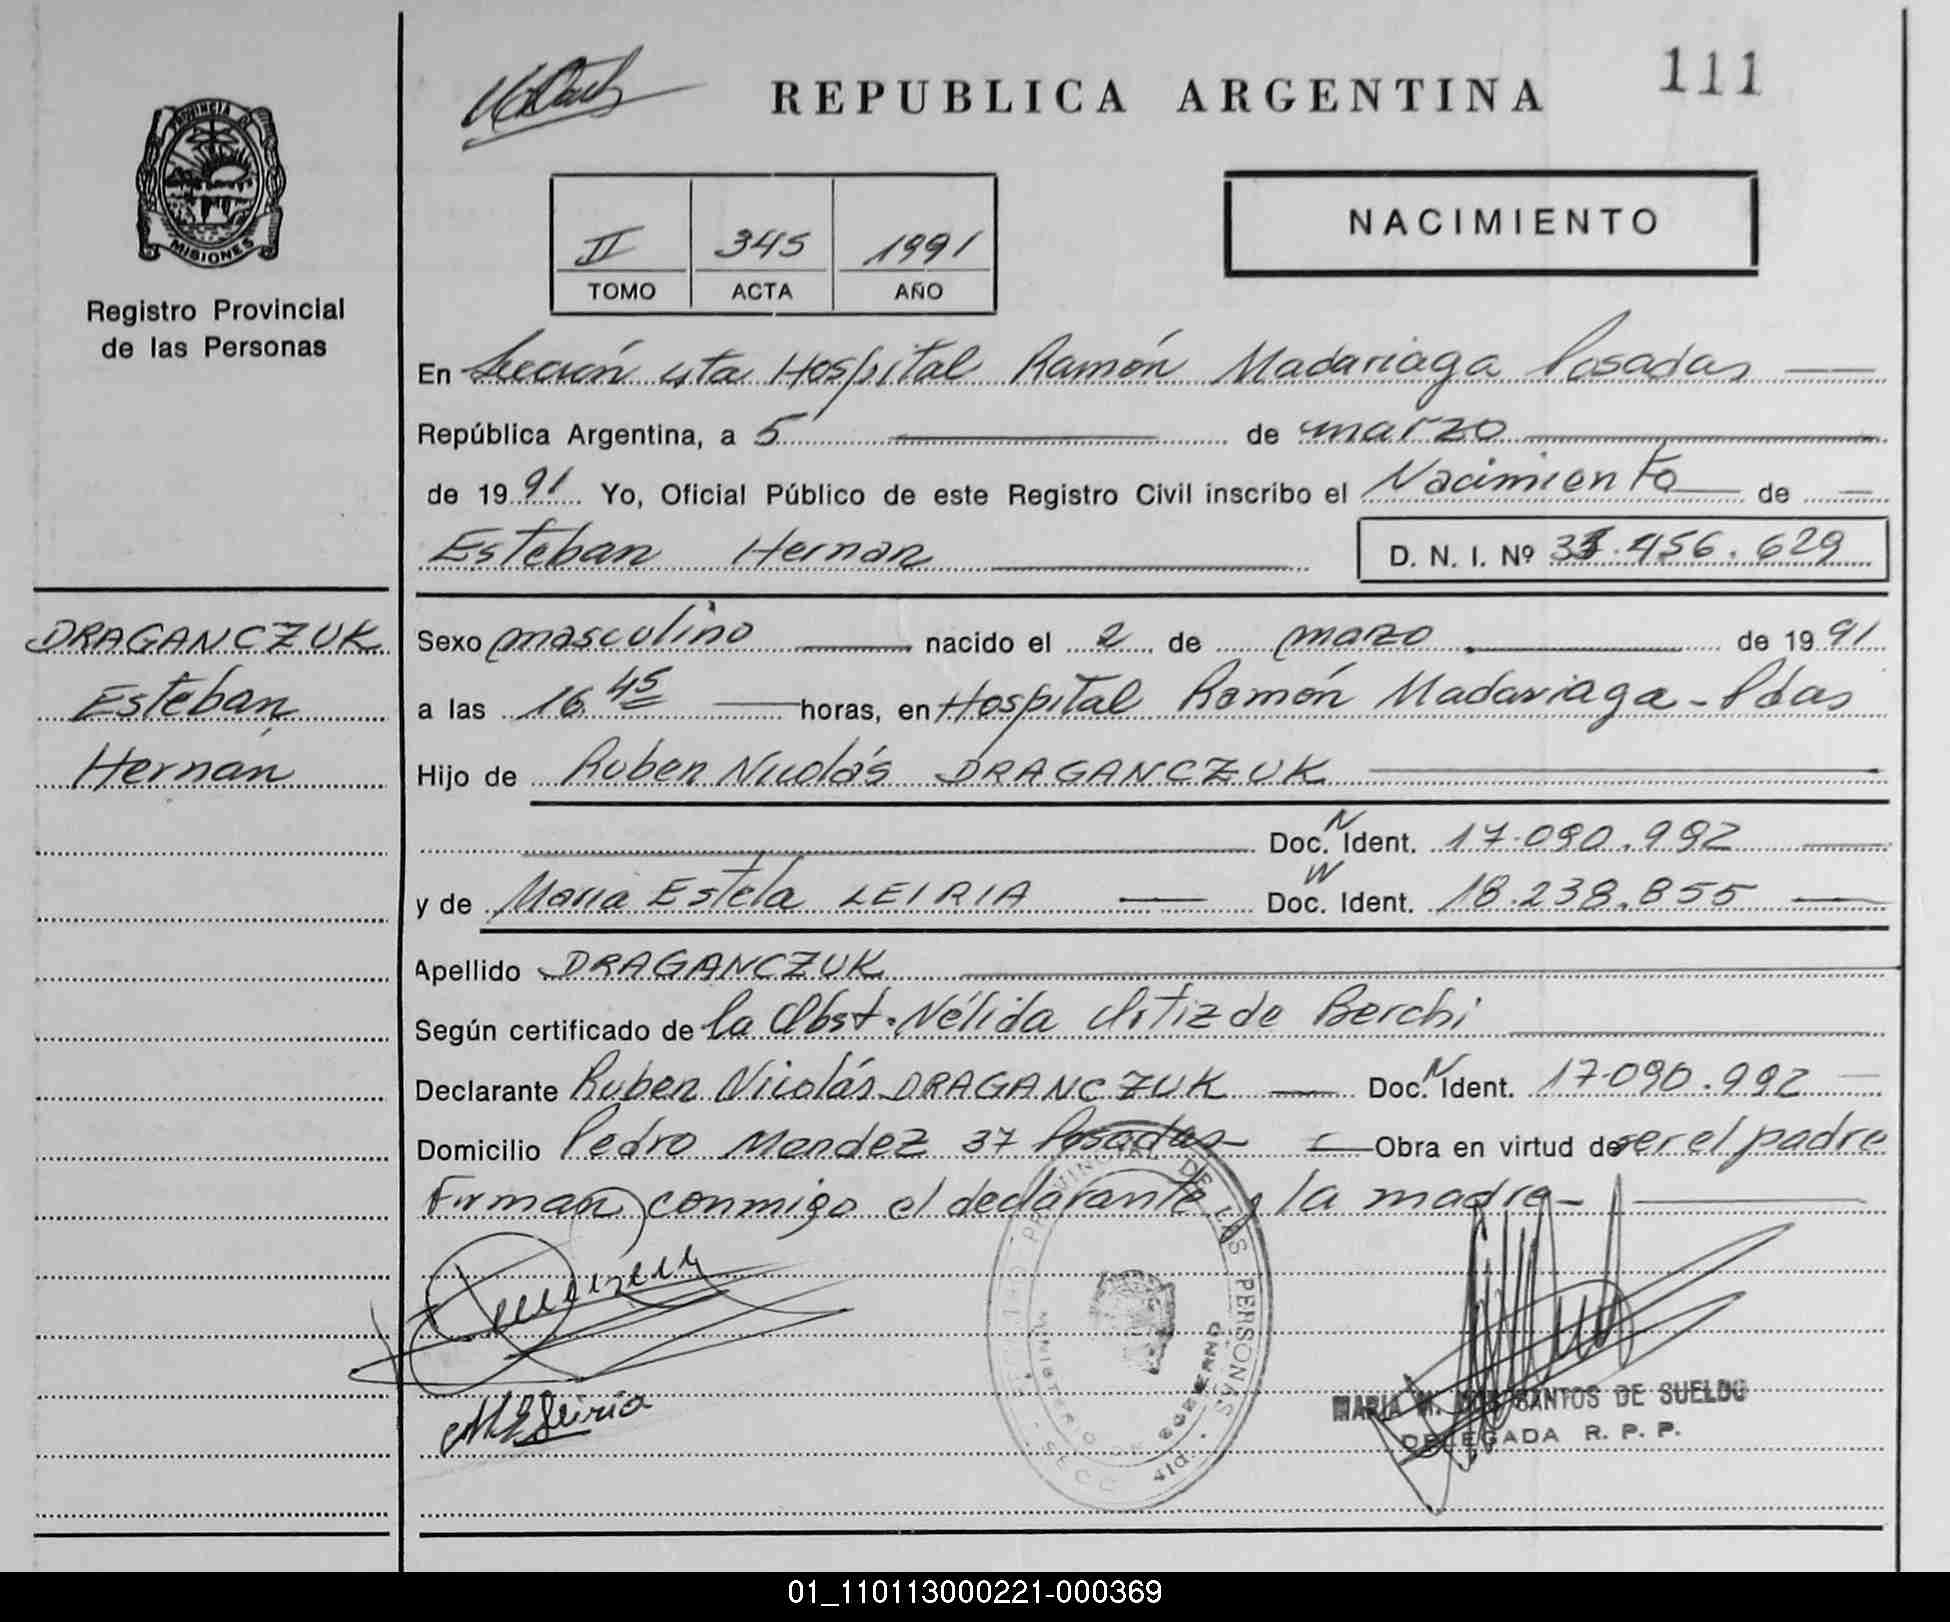 REPUBLICA ARGENTINA
111
PROVINCIA DE
MISIONES
Registro Provincial
de las Personas
II 345 1991
TOMO ACTA AÑO
NACIMIENTO
En Sección 4ta Hospital Ramón Madariaga Posadas
República Argentina, a 5 de marzo
de 1991 Yo, Oficial Público de este Registro Civil inscribo el Nacimiento de
Esteban Hernan
D. N. I. Nº .456.629
DRAGANCZUK
Esteban
Hernán
Sexo masculino nacido el 2 de marzo de 1991
a las 16.45 horas, en Hospital Ramón Madariaga - Pdas
Hijo de Ruben Nicolás DRAGANCZUK
Doc. N Ident. 17.090.992
y de Maria Estela LEIRIA Doc. Ident. 18.238.855
Apellido DRAGANCZUK
Según certificado de la Obst. Nélida Ortiz de Berchi
Declarante Ruben Nicolás DRAGANCZUK Doc. N Ident. 17.090.992
Domicilio Pedro Mendez 37 Posadas Obra en virtud de ser el padre
Firman conmigo el declarante y la madre
PROVINCIAL DE LAS PERSONAS
MINISTERIO DE GOBIERNO
SECC. 4ta.
MEL Leiria
MARIA M. DOS SANTOS DE SUELDO
DELEGADA R. P. P.
01_110113000221-000369